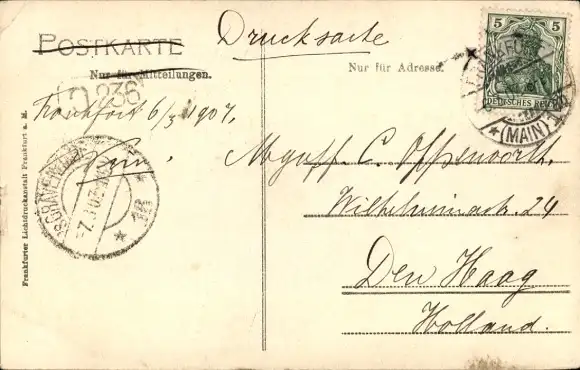 POSTKARTE
Drucksache
Nur für Mitteilungen.
Nur für Adresse.
5 5
DEUTSCHES REICH
FRANKFURT
* (MAIN) 1
236
Frankfort 6/3 1907.
'S GRAVENHAGE
7.3.07
C. Oppenoorth.
Wilhelminastr. 24
Den Haag
Holland.
Frankfurter Lichtdruckanstalt Frankfurt a. M.